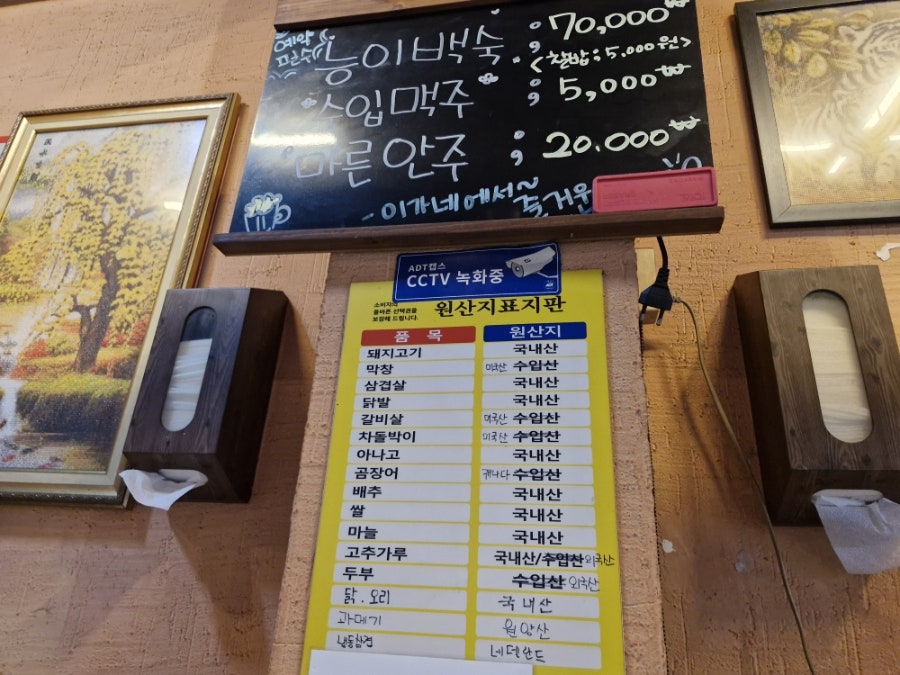 예약
필수
능이백숙 : 70,000₩
<찰밥 : 5,000원>
수입맥주 : 5,000₩
마른안주 : 20.000₩
- 이가네에서~ 즐거운
ADT캡스
CCTV 녹화중
소비자의
올바른 선택권을
보장해 드립니다.
원산지표지판
품 목 원산지
돼지고기 국내산
막창 미국산 수입산
삼겹살 국내산
닭발 국내산
갈비살 미국산 수입산
차돌박이 미국산 수입산
아나고 국내산
곰장어 캐나다 수입산
배추 국내산
쌀 국내산
마늘 국내산
고추가루 국내산/수입산 외국산
두부 수입산 외국산
닭.오리 국내산
과메기 원양산
네델란드